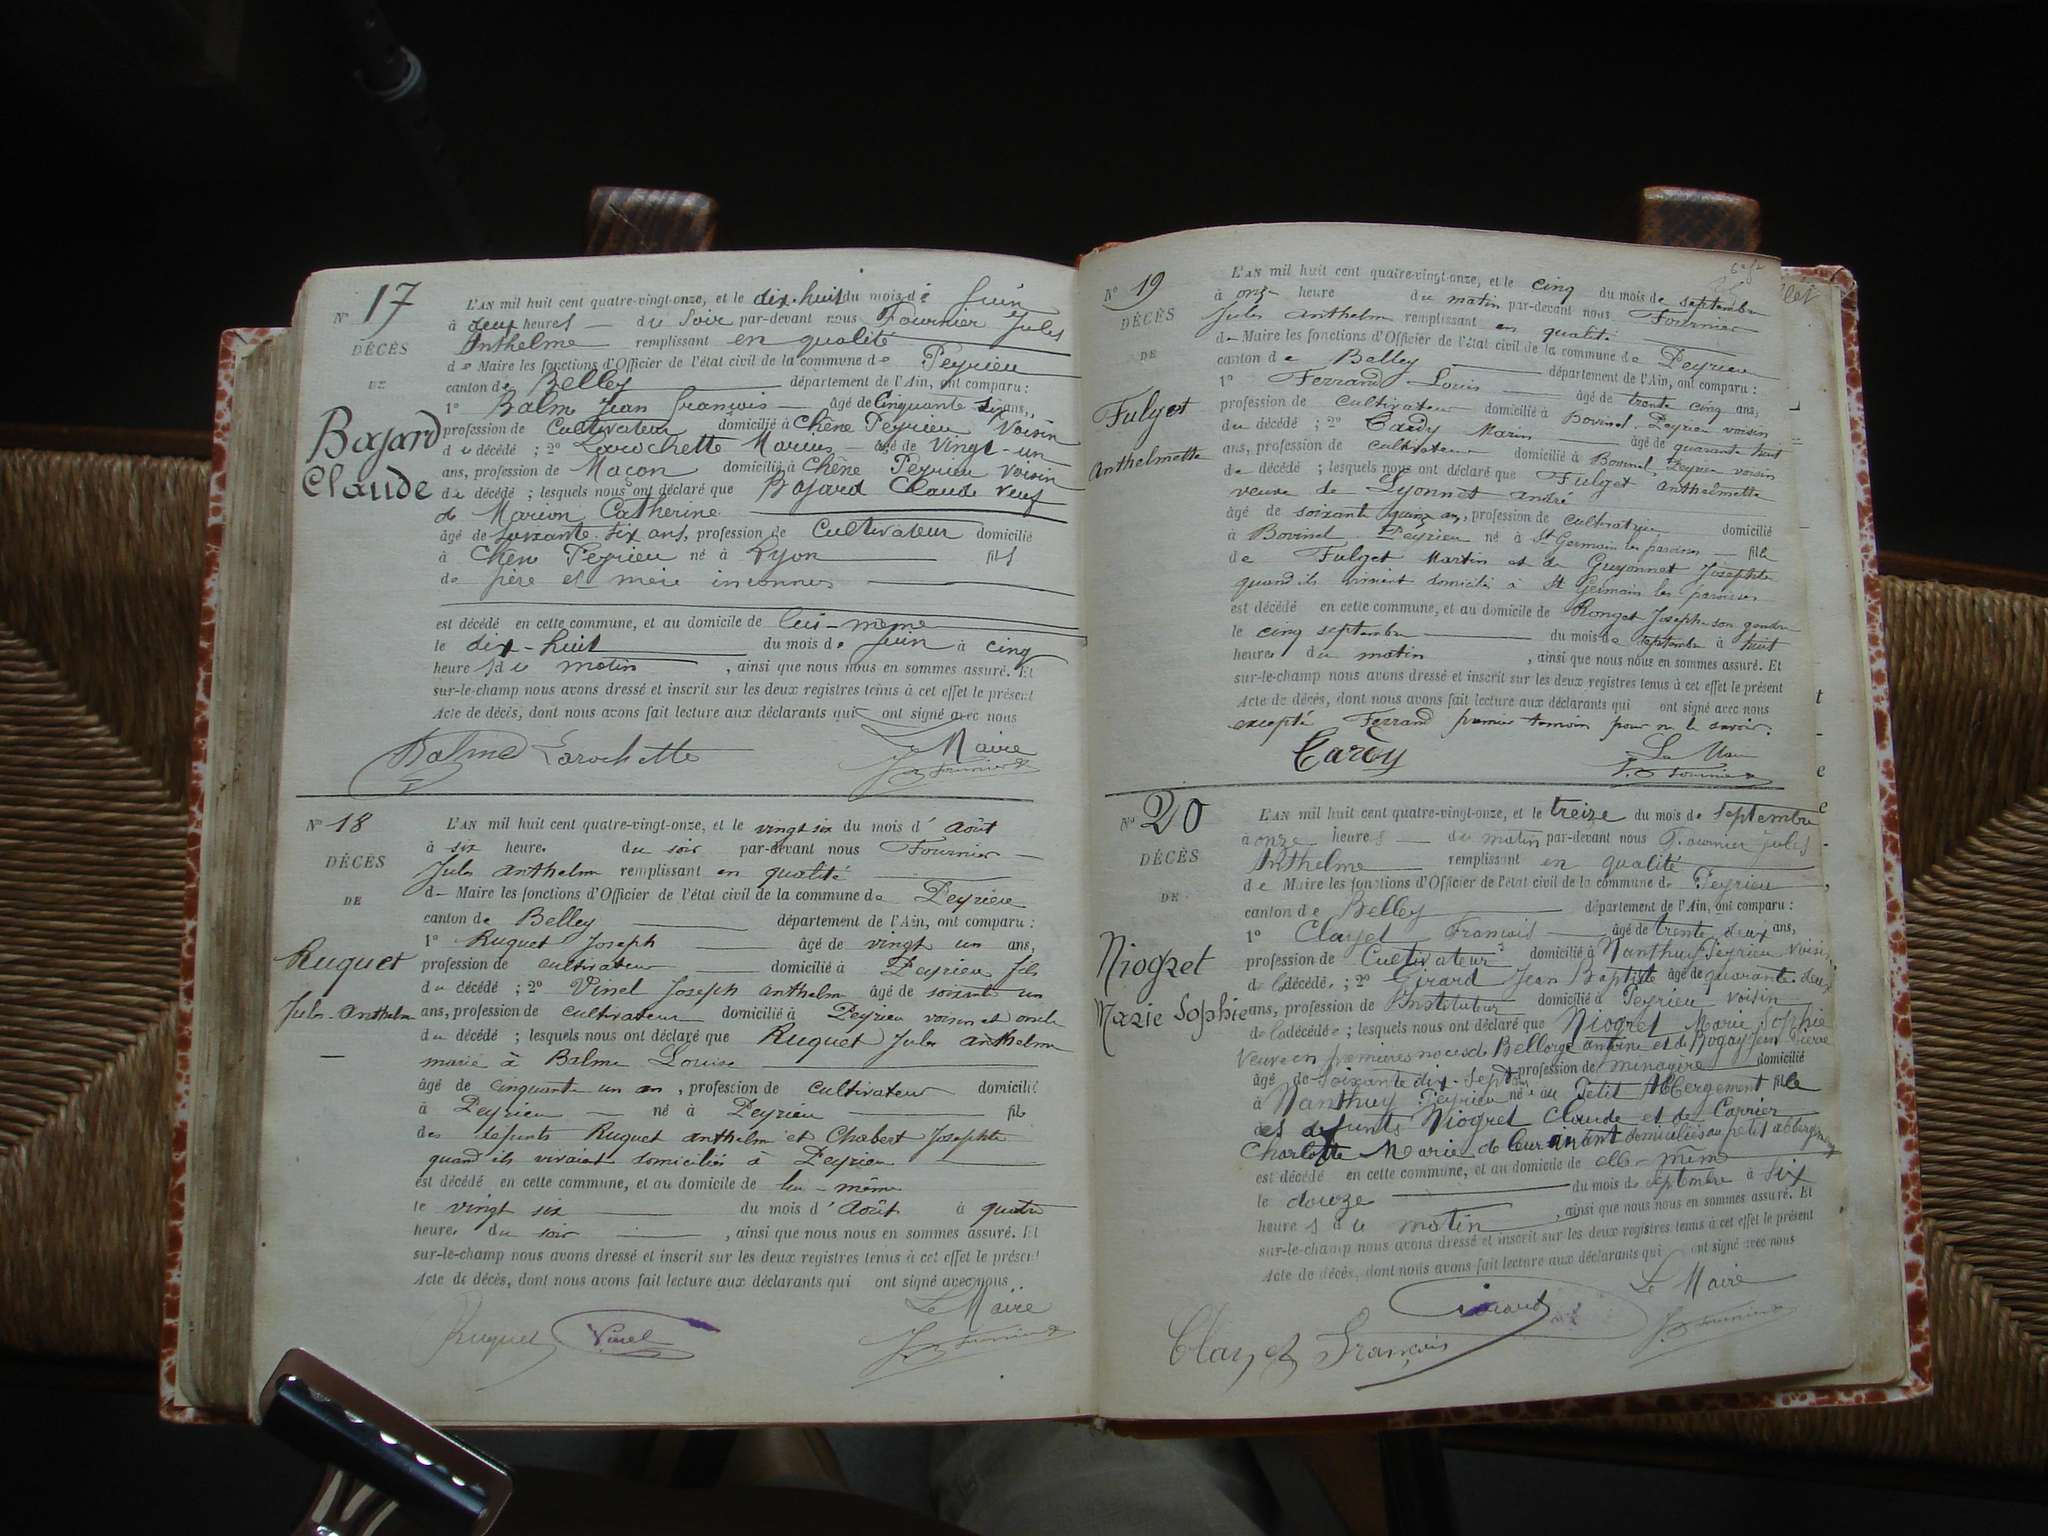 N° 17
DÉCÈS
DE
Bajard
Claude
L'AN mil huit cent quatre-vingt-onze, et le dix-huit du mois de Juin
à deux heures du soir par-devant nous Fournier Jules
Anthelme remplissant en qualité
de Maire les fonctions d'Officier de l'état civil de la commune de Peyrieu
canton de Belley département de l'Ain, ont comparu :
1° Balme Jean françois âgé de Cinquante six ans,
profession de Cultivateur domicilié à Chêne Peyrieu Voisin
du décédé ; 2° Larochette Marius âgé de Vingt-un
ans, profession de Maçon domicilié à Chêne Peyrieu Voisin
de décédé ; lesquels nous ont déclaré que Bajard Claude Veuf
de Marion Catherine
âgé de soixante six ans, profession de Cultivateur domicilié
à Chêne Peyrieu né à Lyon fils
de père et mère inconnus
est décédé en cette commune, et au domicile de lui-même
le dix-huit du mois de Juin à cinq
heures du matin, ainsi que nous nous en sommes assuré. Et
sur-le-champ nous avons dressé et inscrit sur les deux registres tenus à cet effet le présent
Acte de décès, dont nous avons fait lecture aux déclarants qui ont signé avec nous
Balme Larochette Le Maire
J. A. Fournier
N° 18
DÉCÈS
DE
Ruguet
Jules Anthelm
L'AN mil huit cent quatre-vingt-onze, et le vingt six du mois d'Août
à six heures du soir par-devant nous Fournier
Jules Anthelm remplissant en qualité
de Maire les fonctions d'Officier de l'état civil de la commune de Peyrieu
canton de Belley département de l'Ain, ont comparu :
1° Ruguet Joseph âgé de vingt un ans,
profession de cultivateur domicilié à Peyrieu fils
du décédé ; 2° Vinel Joseph Anthelm âgé de soixante un
ans, profession de cultivateur domicilié à Peyrieu voisin et oncle
du décédé ; lesquels nous ont déclaré que Ruguet Jules Anthelm
marié à Balme Louise
âgé de cinquante un an, profession de cultivateur domicilié
à Peyrieu né à Peyrieu fils
des défunts Ruguet Anthelm et Chabert Josephte
quand ils vivaient domiciliés à Peyrieu
est décédé en cette commune, et au domicile de lui-même
le vingt six du mois d'Août à quatre
heures du soir, ainsi que nous nous en sommes assuré. Et
sur-le-champ nous avons dressé et inscrit sur les deux registres tenus à cet effet le présent
Acte de décès, dont nous avons fait lecture aux déclarants qui ont signé avec nous
Le Maire
Ruguet Vinel J. A. Fournier
N° 19
DÉCÈS
DE
Fulget
Anthelmette
L'AN mil huit cent quatre-vingt-onze, et le cinq du mois de septembre
à onze heure du matin par-devant nous Fournier
Jules Anthelm remplissant en qualité
de Maire les fonctions d'Officier de l'état civil de la commune de Peyrieu
canton de Belley département de l'Ain, ont comparu :
1° Ferrand Louis âgé de trente cinq ans,
profession de cultivateur domicilié à Bovinel Peyrieu voisin
du décédé ; 2° Cardy Marin âgé de quarante huit
ans, profession de cultivateur domicilié à Bovinel, Peyrieu voisin
de décédé ; lesquels nous ont déclaré que Fulget Anthelmette
veuve de Lyonnet André
âgé de soixante quinze ans, profession de cultivatrice domicilié
à Bovinel Peyrieu né à St Germain les paroisses fille
de Fulget Martin et de Guyonnet Josephte
quand ils vivaient domicilié à St Germain les paroisses
est décédé en cette commune, et au domicile de Ronget Joseph son gendre
le cinq septembre du mois de septembre à huit
heures du matin, ainsi que nous nous en sommes assuré. Et
sur-le-champ nous avons dressé et inscrit sur les deux registres tenus à cet effet le présent
Acte de décès, dont nous avons fait lecture aux déclarants qui ont signé avec nous
excepté Ferrand premier témoin pour ne le savoir.
Cardy Le Maire
J. A. Fournier
N° 20
DÉCÈS
DE
Niogret
Marie Sophie
L'AN mil huit cent quatre-vingt-onze, et le treize du mois de septembre
à onze heures du matin par-devant nous Fournier Jules
Anthelme remplissant en qualité
de Maire les fonctions d'Officier de l'état civil de la commune de Peyrieu
canton de Belley département de l'Ain, ont comparu :
1° Clayet François âgé de trente deux ans,
profession de Cultivateur domicilié à Nanthuy Peyrieu Voisin
de la décédé ; 2° Girard Jean Baptiste âgé de quarante-deux
ans, profession de Instituteur domicilié à Peyrieu voisin
de la décédée ; lesquels nous ont déclaré que Niogret Marie Sophie
Veuve en premières noces de antoine et de Jean Pierre
âgé de soixante dix-sept ans profession de menagère domicilié
à Nanthuy Peyrieu né au Petit Abbergement fille
des defunts Niogret Claude et de Carrier
Charlotte Marie de leur vivant domiciliés au petit abbergement
est décédé en cette commune, et au domicile de elle-même
le douze du mois de septembre à six
heures du matin, ainsi que nous nous en sommes assuré. Et
sur-le-champ nous avons dressé et inscrit sur les deux registres tenus à cet effet le présent
Acte de décès, dont nous avons fait lecture aux déclarants qui ont signé avec nous
Girard Le Maire
Clayet François J. A. Fournier